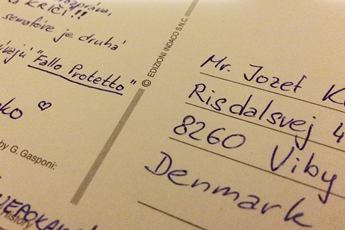 KRIČÍ!!
semafóre je druhá
"Fallo Protetto"
♡
by G. Gasponi:
© EDIZIONI INDACO S.N.C.
Mr. Jozef
Risdalsvej 4
8260 Viby
Denmark